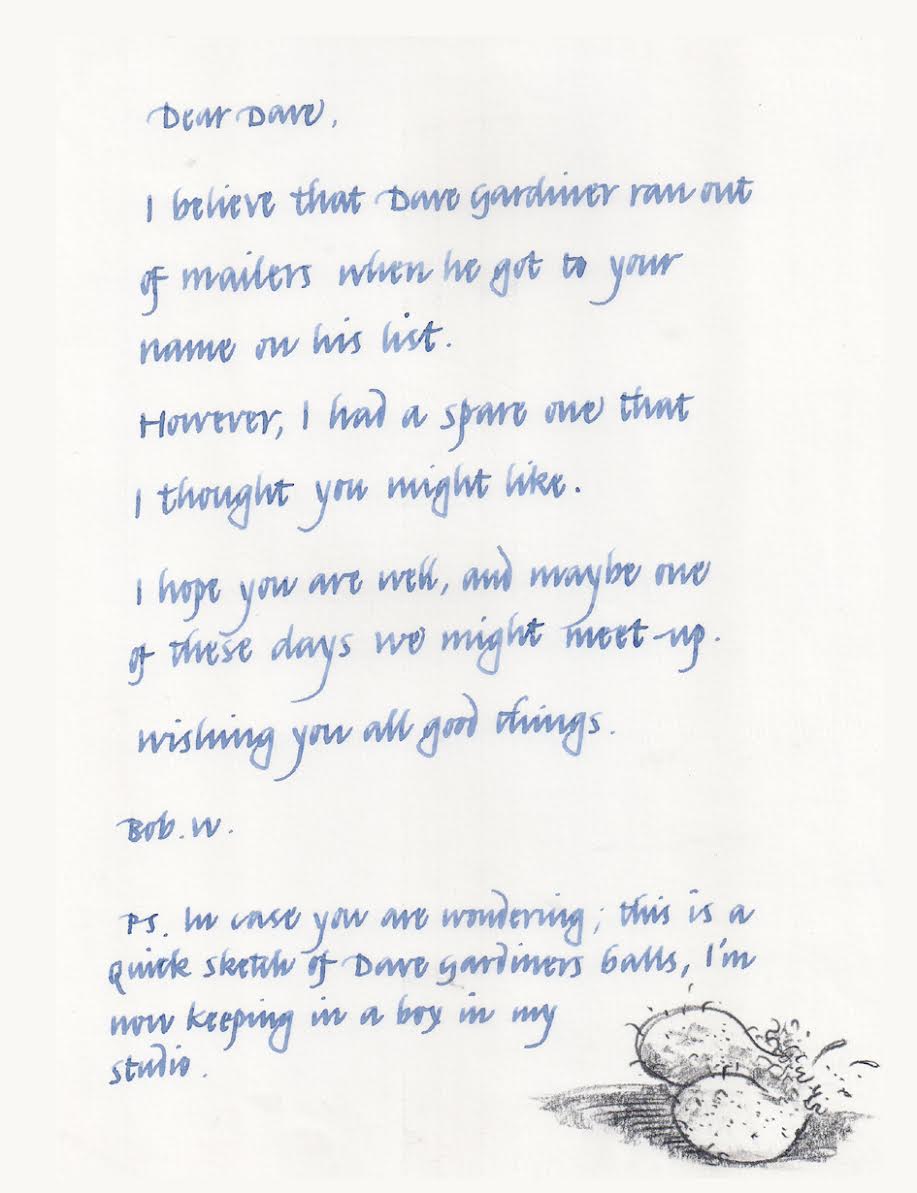 Dear Dave,
I believe that Dave Gardiner ran out
of mailers when he got to your
name on his list.
However, I had a spare one that
I thought you might like.
I hope you are well, and maybe one
of these days we might meet-up.
wishing you all good things.
Bob. W.
PS. In case you are wondering; this is a
quick sketch of Dave Gardiners balls, I'm
now keeping in a box in my
studio.